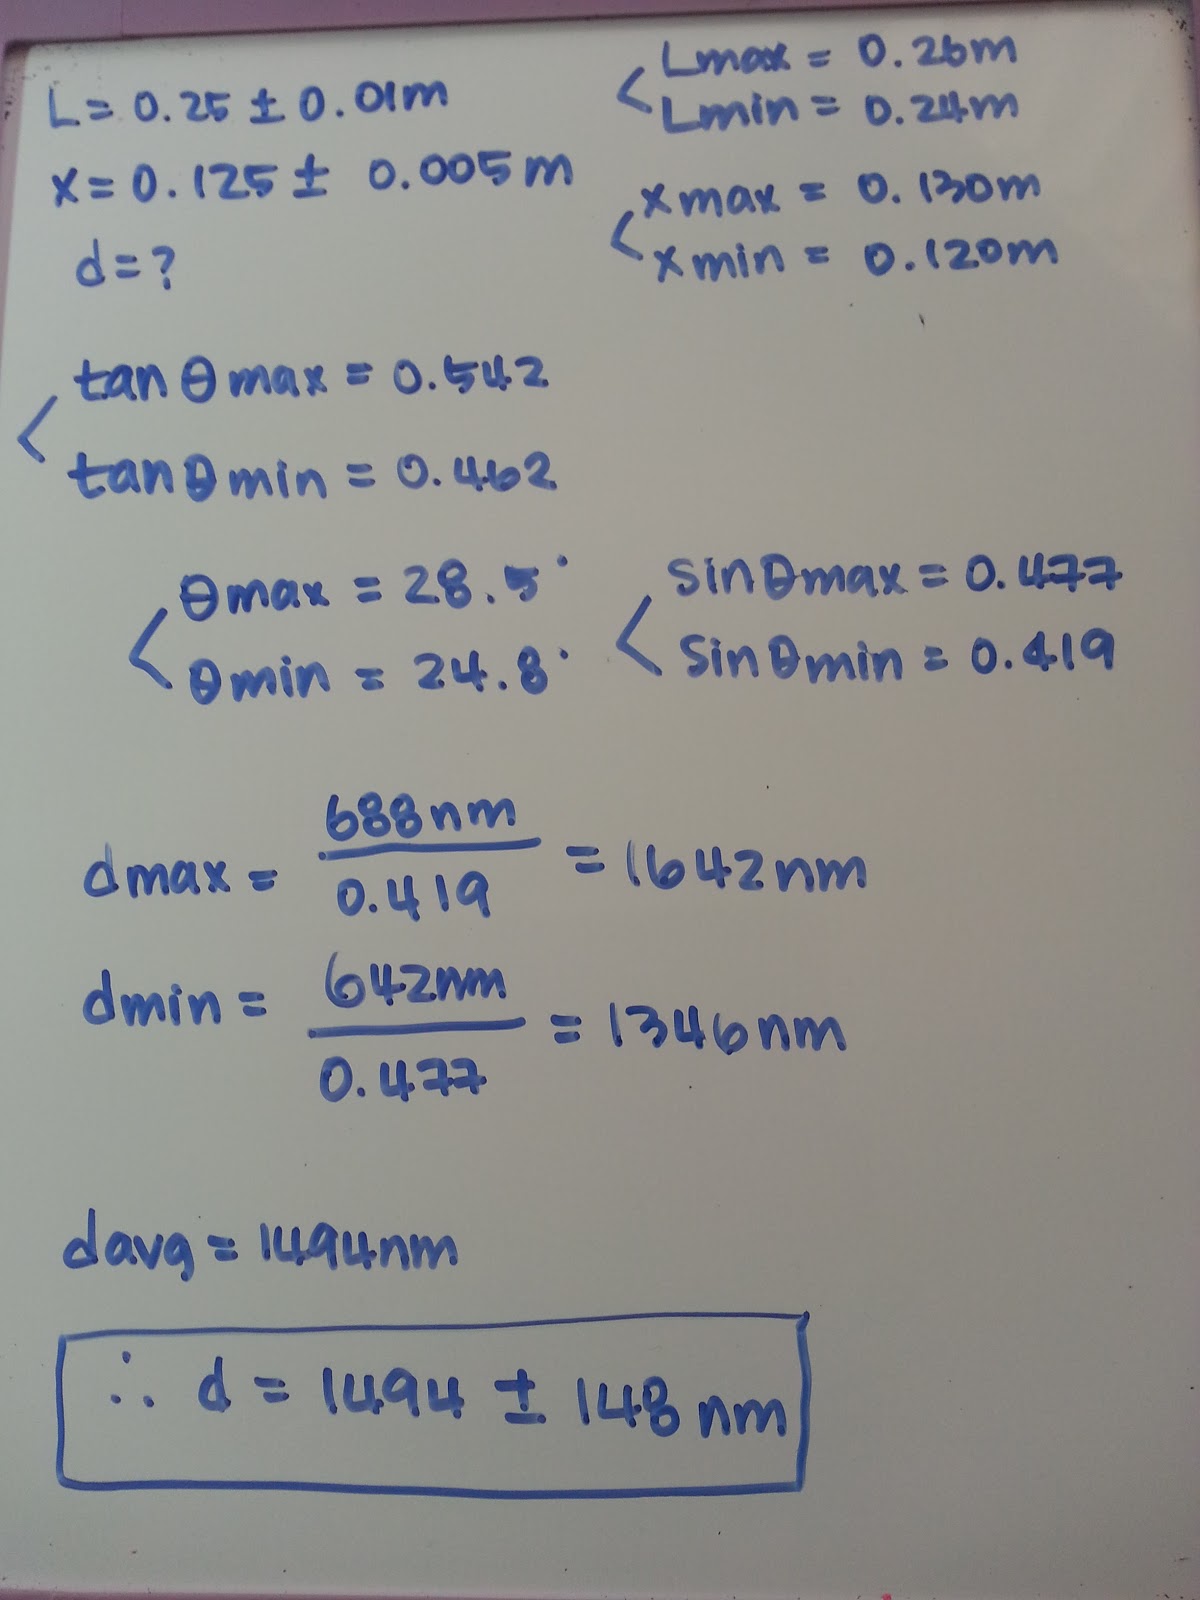 L = 0.25 ± 0.01m
x = 0.125 ± 0.005m
d = ?
Lmax = 0.26m
Lmin = 0.24m
xmax = 0.130m
xmin = 0.120m
tanθmax = 0.542
tanθmin = 0.462
θmax = 28.5°
θmin = 24.8°
sinθmax = 0.477
sinθmin = 0.419
dmax = 688nm / 0.419 = 1642nm
dmin = 642nm / 0.477 = 1346nm
davg = 1494nm
∴ d = 1494 ± 148nm